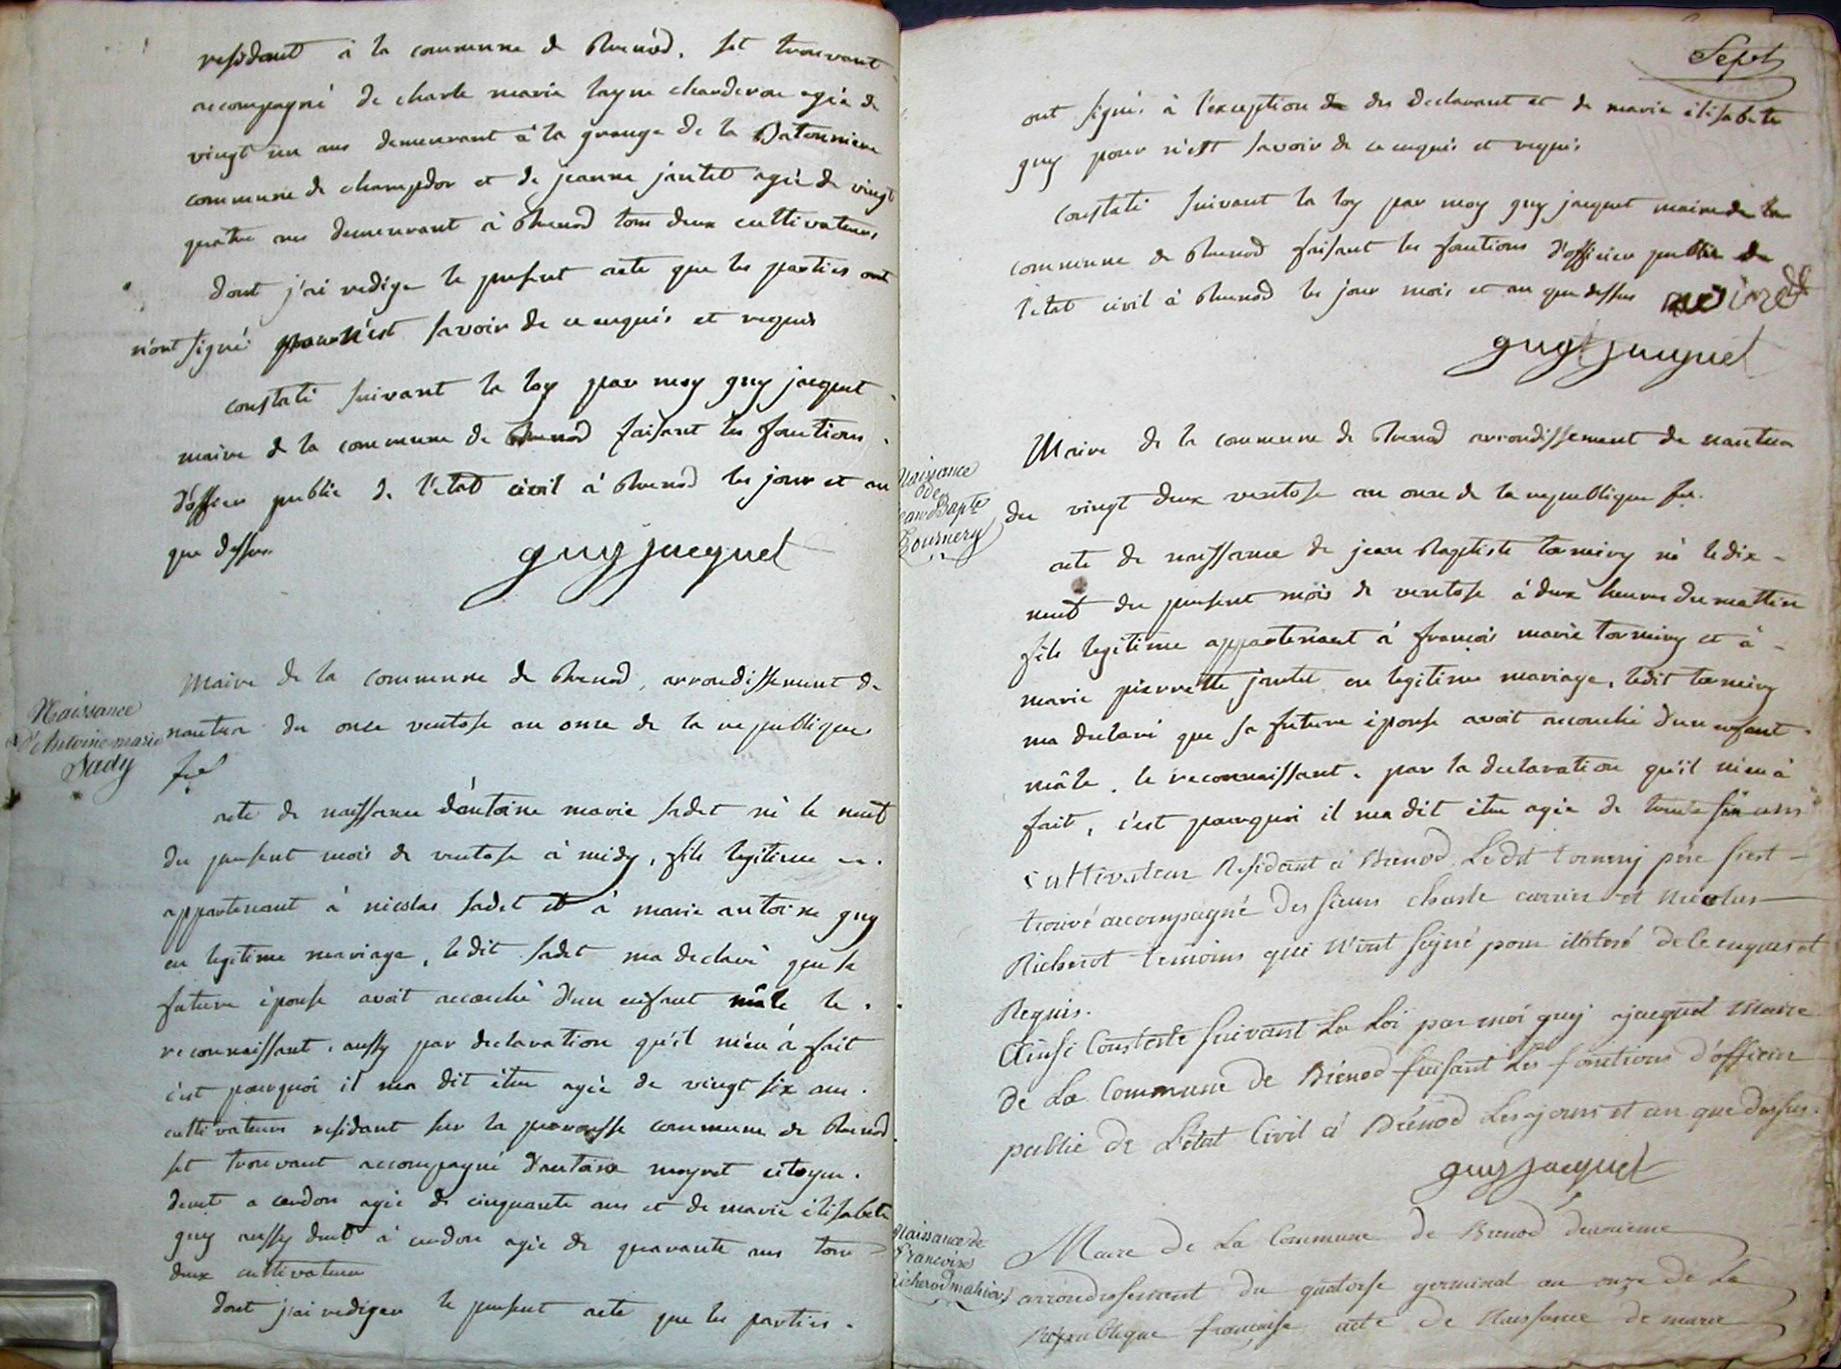 residant à la commune de Brenod, set trouvant
accompagné de charle marie layne chanderou agée de
vingt un ans demeurant à la grange de la Batonniere
commune de champdor et de jeanne jantet agée de vingt
quatre ans demeurant à Brenod tous deux cultivateurs
dont j'ai redigé le present acte que les parties ont
n'ont signé pour n'est savoir de ce enquis et requis
constaté suivant la loy par moy guy jacquet
maire de la commune de Brenod faisant les fonctions
d'officier public de l'état civil à Brenod les jour et an
que dessus
guy jacquet
Naissance
d'Antoine marie
Sady
Maire de la commune de Brenod, arrondissement de
nantua du onze ventose an onze de la republique
fse
acte de naissance d'antoine marie sadet né le neuf
du present mois de ventose à midy, fils legitime
appartenant à nicolas sadet et à marie antoine guy
en legitime mariage, ledit sadet ma declaré que sa
future épouse avoit accouché d'un enfant mâle le
reconnaissant, aussy par declaration qu'il m'en à fait
c'est pourquoi il ma dit être agée de vingt six ans.
cultivateurs residant sur la commune de Brenod
set trouvant accompagné d'antoine moyret citoyen.
demt a cerdon agée de cinquante ans et de marie élisabete
guy aussy demt à cerdon agée de quarante ans tous
deux cultivateurs
dont j'ai rediger le present acte que les parties.
Sept
ont signés à l'exception de des declarant et de marie élisabete
guy pour n'est savoir de ce enquis et requis
constaté suivant la loy par moy guy jacquet maire de la
commune de Brenod faisant les fonctions d'officier public de
l'état civil à Brenod les jour mois et an que dessus
guy jacquet
Naissance
de
jean Bapte
Tournery
Maire de la commune de Brenod arrondissement de nantua
du vingt deux ventose an onze de la republique fse.
acte de naissance de jean Baptiste tornery né le dix-
neuf du present mois de ventose à deux heures du mattin
fils legitime appartenant à françois marie tornery et à
marie pierrette jantet en legitime mariage, ledit tornery
ma declaré que sa future épouse avoit accouché d'un enfant
mâle, le reconnaissant, par la declaration qu'il m'en à
fait, c'est pourquoi il ma dit être agée de trente six ans
cultivateur Residant à Brenod Ledit tornery père s'est
trouvé accompagné des sieurs charle carrier et Nicolas
Richerot temoins qui n'ont signé pour illiteré de le enquis et
Requis.
Ainsi Constesté suivant La Loi par moi guy jacquet Maire
de La Commune de Brénod faisant Les fonctions d'officier
public de L'état Civil à Brénod Les jours et an que dessus.
guy jacquet
Naissance de
Francoise
Richerod
Maire de La Commune de Brenod deuxieme
arrondissement du quatorse germinal an onze de La
Republique française acte de Naissance de marie